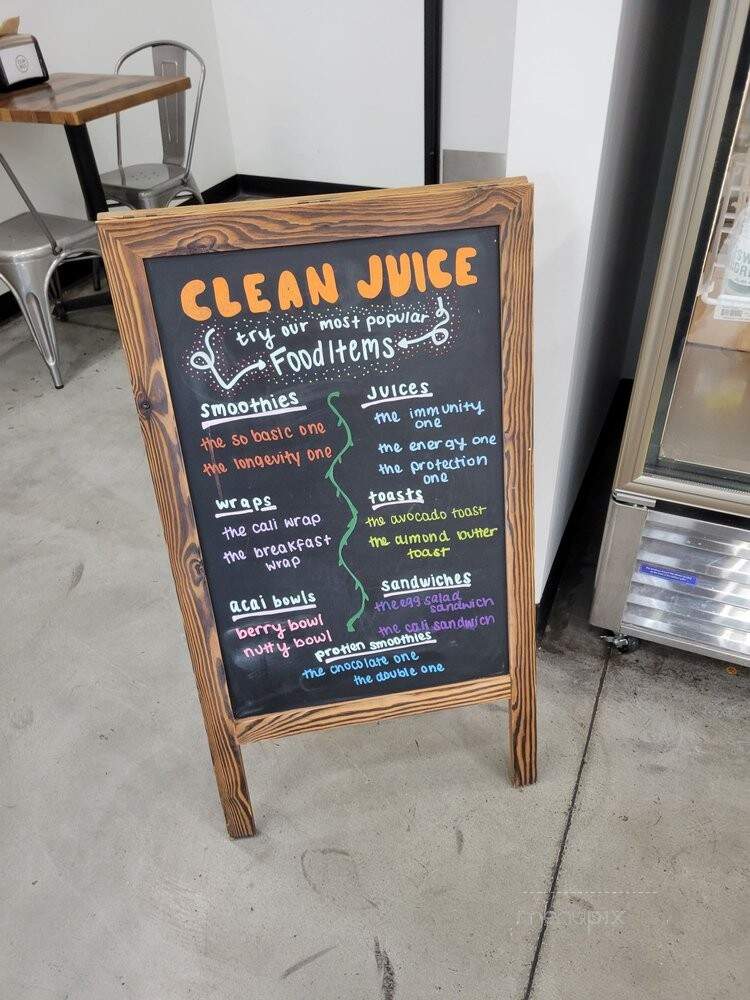 CLEAN JUICE
try our most popular
Food Items
smoothies
the so basic one
the longevity one
wraps
the cali wrap
the breakfast
wrap
acai bowls
berry bowl
nutty bowl
juices
the immunity
one
the energy one
the protection
one
toasts
the avocado toast
the almond butter
toast
sandwiches
the egg salad
sandwich
the cali sandwich
protien smoothies
the chocolate one
the double one
menupix